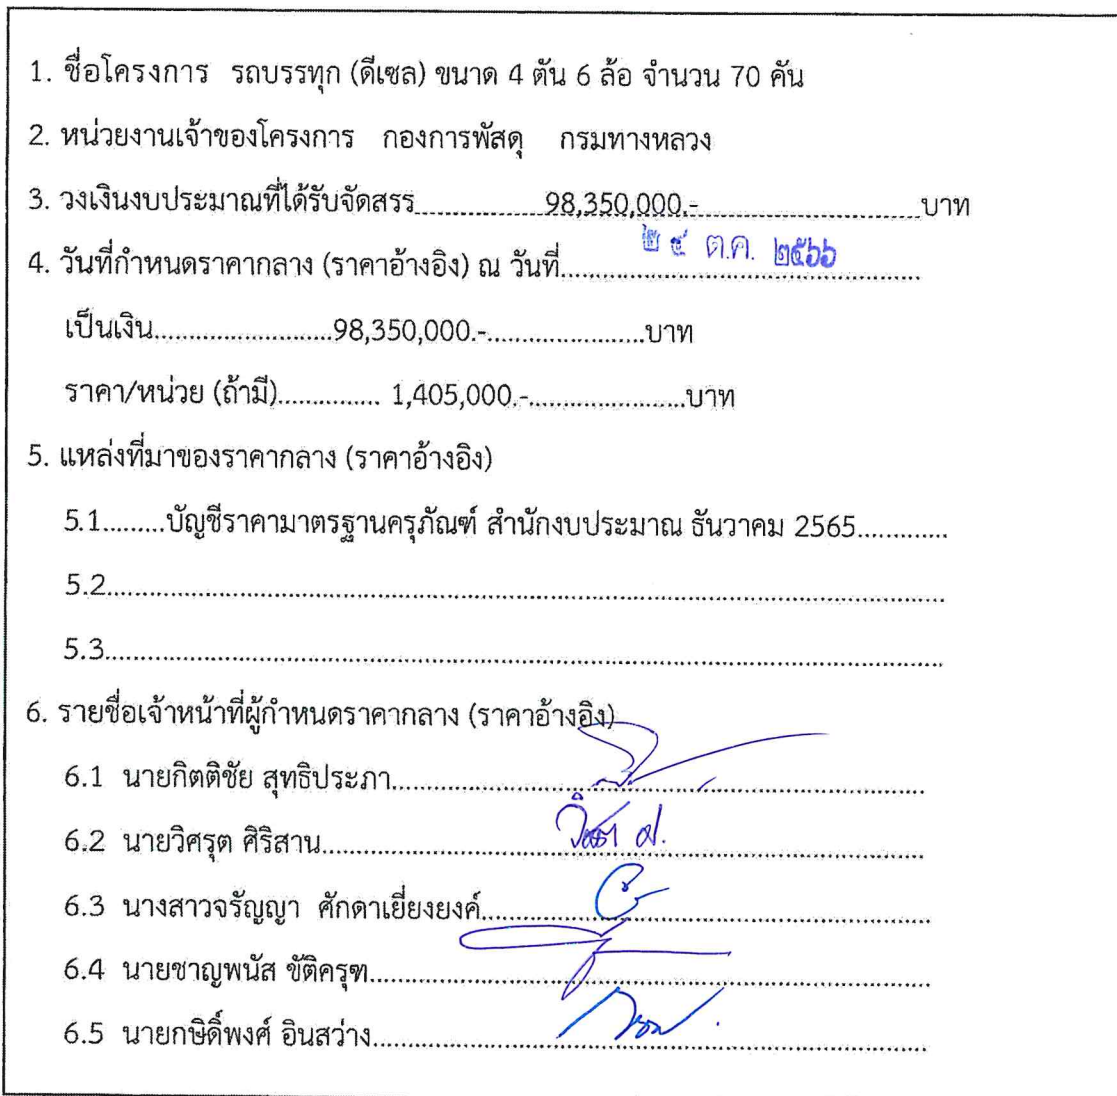 1. ชื่อโครงการ รถบรรทุก (ดีเซล) ขนาด 4 ตัน 6 ล้อ จำนวน 70 คัน
2. หน่วยงานเจ้าของโครงการ กองการพัสดุ กรมทางหลวง
3. วงเงินงบประมาณที่ได้รับจัดสรร..................98,350,000.-................................บาท
4. วันที่กำหนดราคากลาง (ราคาอ้างอิง) ณ วันที่..... ๒๔ ต.ค. ๒๕๖๖
เป็นเงิน.........................98,350,000.-.......................บาท
ราคา/หน่วย (ถ้ามี)............... 1,405,000.-.......................บาท
5. แหล่งที่มาของราคากลาง (ราคาอ้างอิง)
5.1.........บัญชีราคามาตรฐานครุภัณฑ์ สำนักงบประมาณ ธันวาคม 2565.............
5.2.........................
5.3.........................
6. รายชื่อเจ้าหน้าที่ผู้กำหนดราคากลาง (ราคาอ้างอิง)
6.1 นายกิตติชัย สุทธิประภา.........................
6.2 นายวิศรุต ศิริสาน.........................
6.3 นางสาวจรัญญา ศักดาเยี่ยงยงค์.........................
6.4 นายชาญพนัส ขัติครุฑ.........................
6.5 นายกษิดิ์พงศ์ อินสว่าง.........................